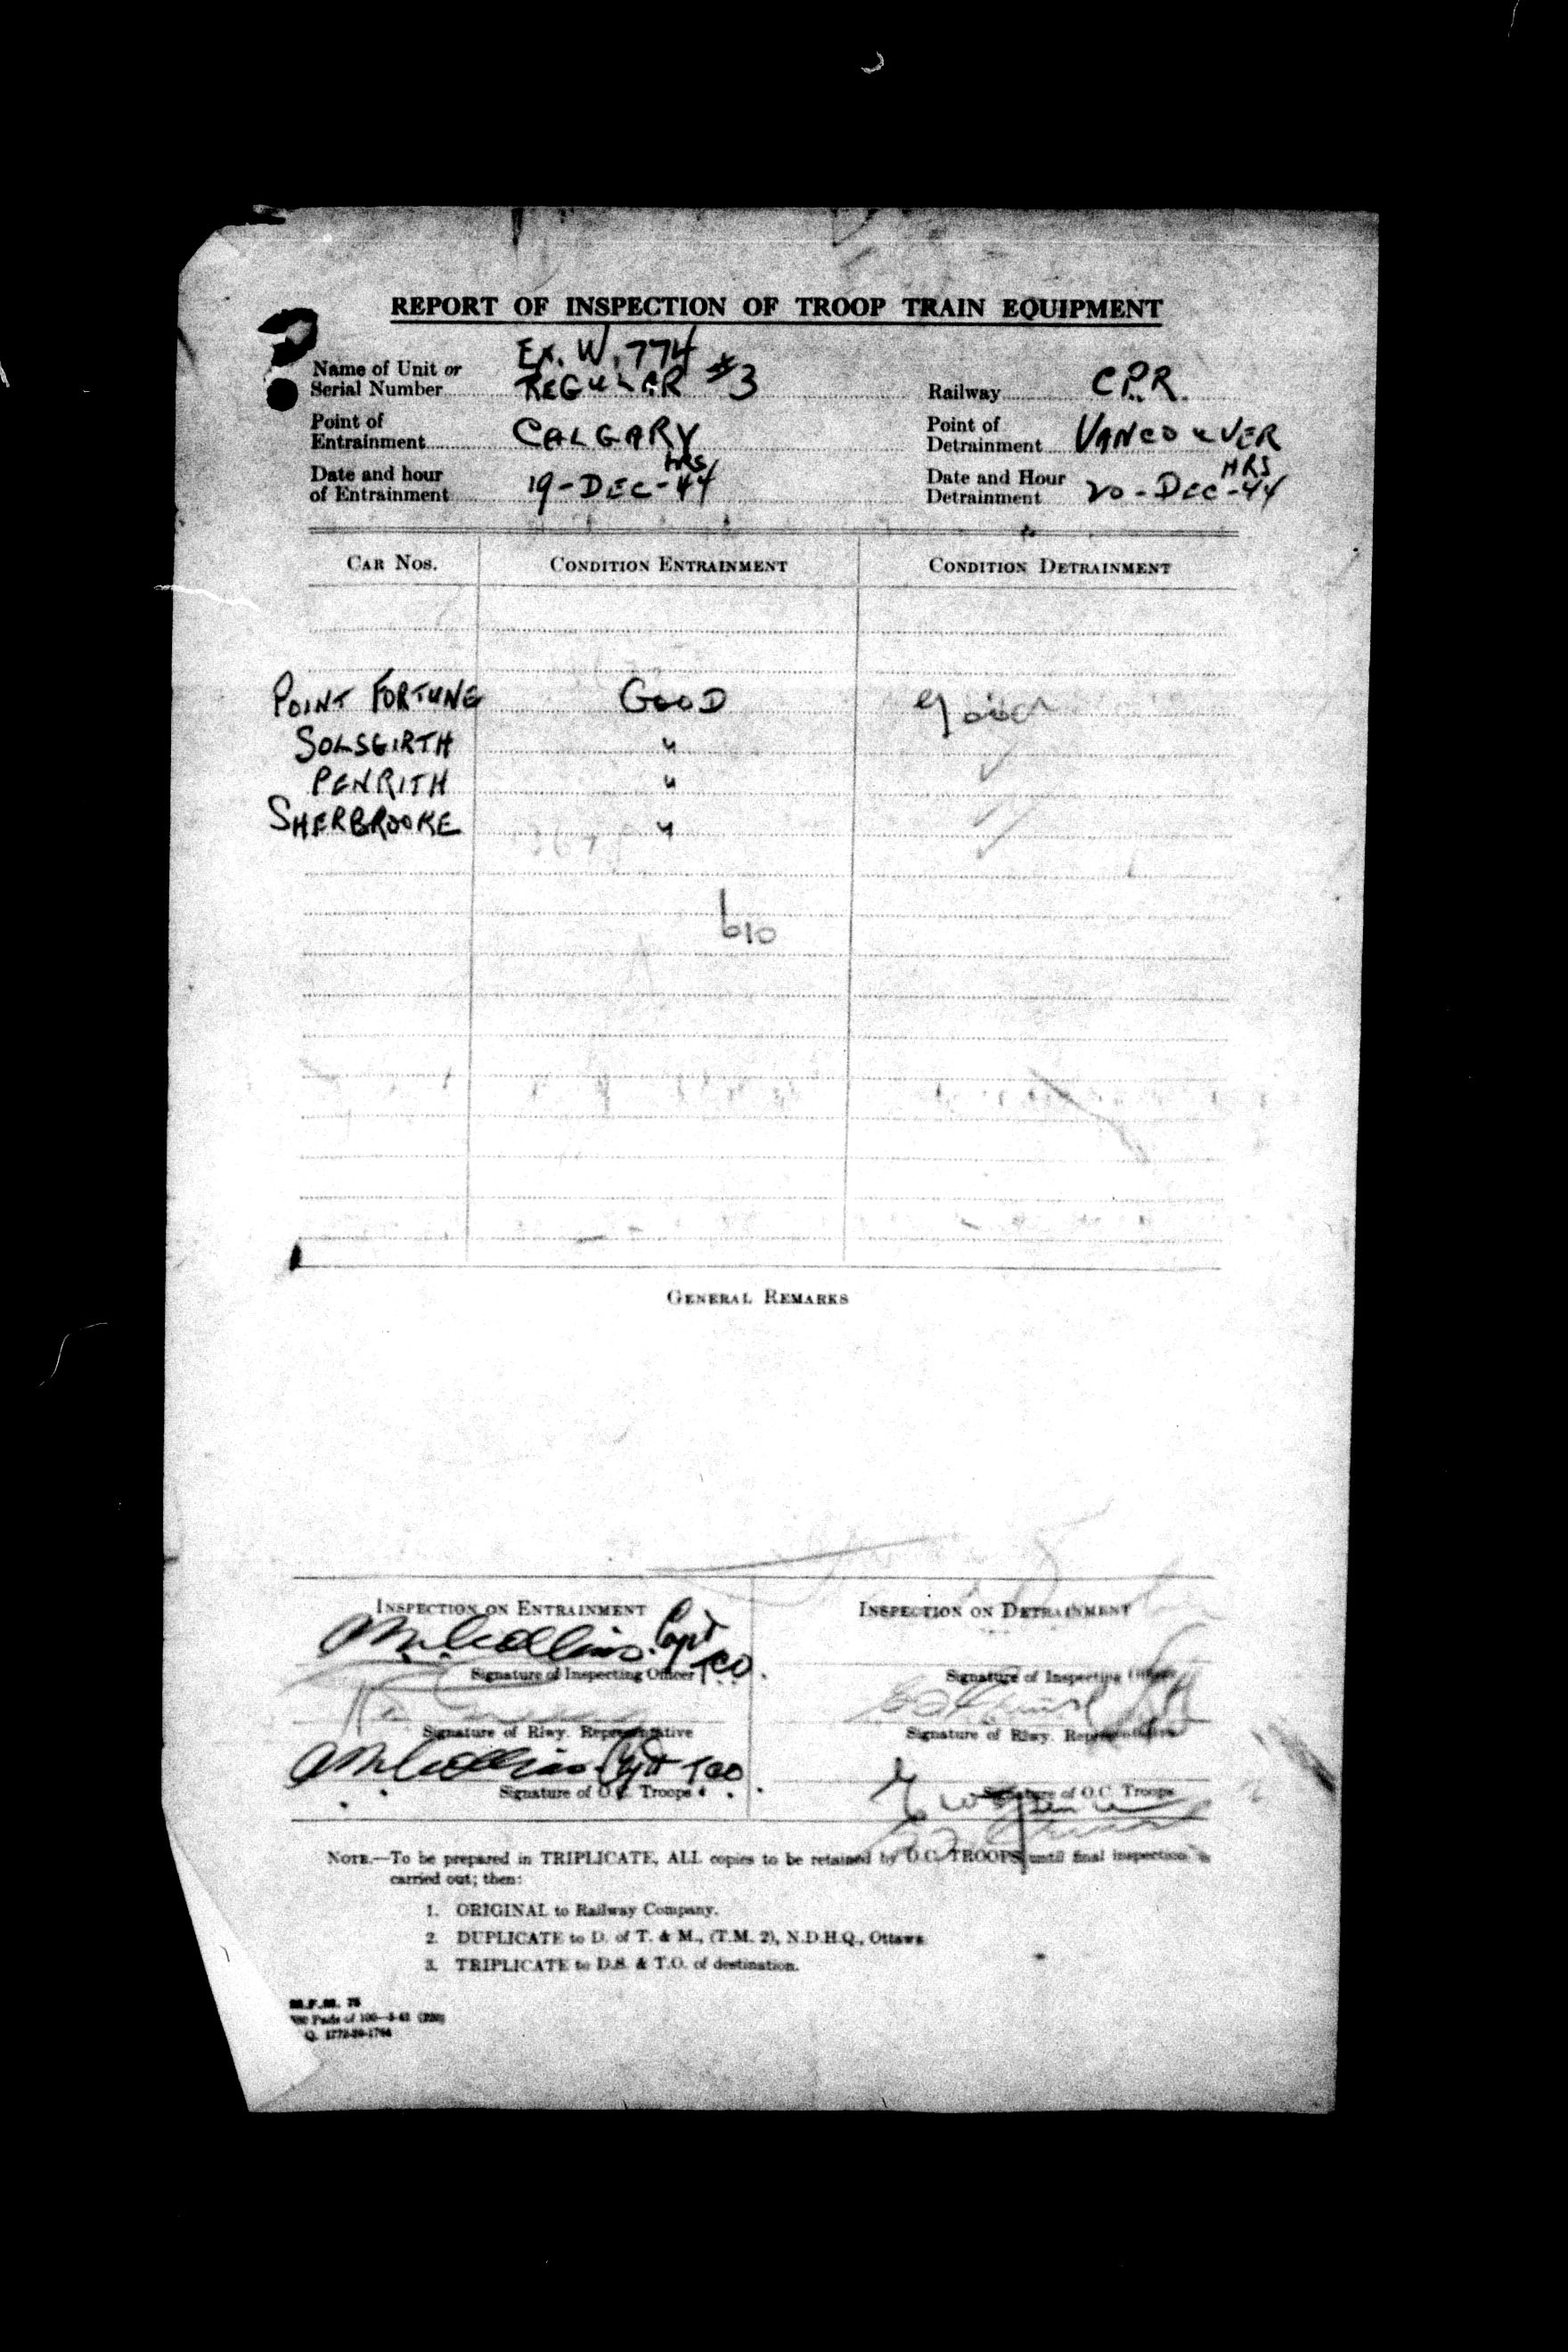 REPORT OF INSPECTION OF TROOP TRAIN EQUIPMENT
Ex. W. 774
Name of Unit or
Serial Number REGULAR #3
Railway CPR.
Point of
Entrainment CALGARY
Point of
Detrainment VANCOUVER
Date and hour
of Entrainment 19-DEC-44 HRS
Date and Hour
Detrainment 20-DEC-44 HRS
CAR NOS. CONDITION ENTRAINMENT CONDITION DETRAINMENT
POINT FORTUNE GOOD Good
SOLSGIRTH "
PENRITH "
SHERBROOKE "
610
GENERAL REMARKS
INSPECTION ON ENTRAINMENT INSPECTION ON DETRAINMENT
Collins. Capt
TCO.
Signature of Inspecting Officer Signature of Inspecting Officer
Signature of Rlwy. Representative Signature of Rlwy. Representative
Collins Capt TCO
Signature of O.C. Troops Signature of O.C. Troops
NOTE.—To be prepared in TRIPLICATE, ALL copies to be retained by O.C. TROOPS until final inspection is
carried out; then:
1. ORIGINAL to Railway Company.
2. DUPLICATE to D. of T. & M., (T.M. 2), N.D.H.Q., Ottawa.
3. TRIPLICATE to D.S. & T.O. of destination.
M.F.M. 75
Pads of 100
Q. 1772-39-1764